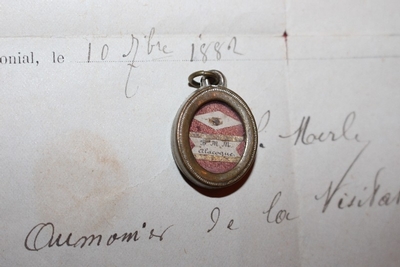 onial, le 10 7bre 1882
M. M.
Alacoque
Merle
Aumonier de la Visitat